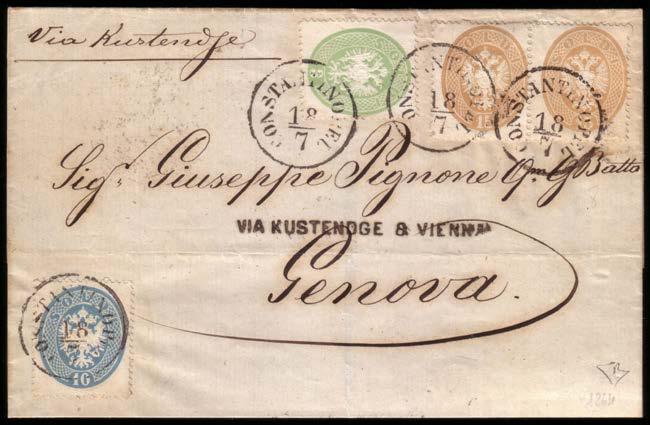 Via Kustendge.
3
SOLDI
SOLDI
15
CONSTANTINOPEL
18/7
CONSTANTINOPEL
18/7
CONSTANTINOPEL
18/7
Sigr. Giuseppe Pignone Qm GBatta
VIA KUSTENDGE & VIENNA
Genova.
CONSTANTINOPEL
18/7
10